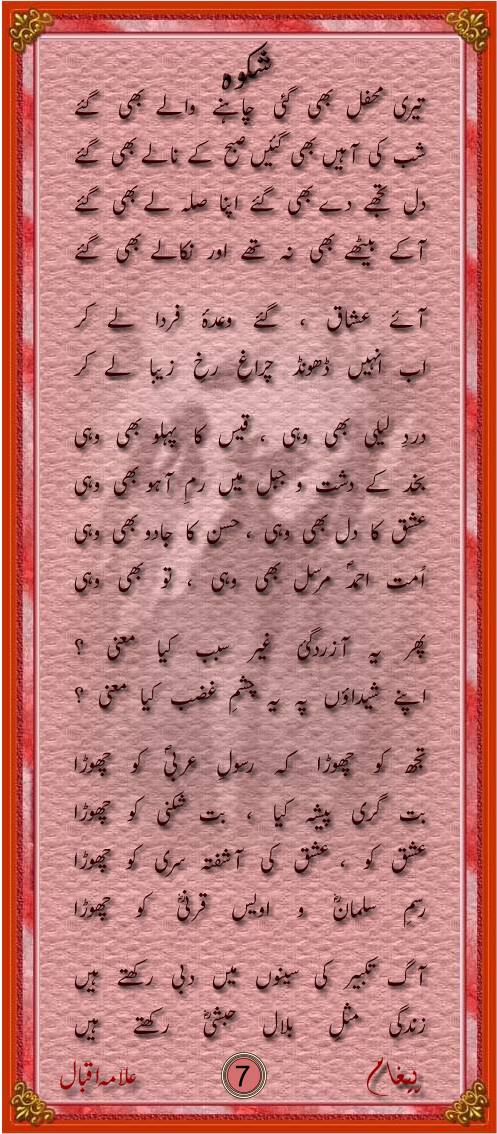 شکوہ
تیری محفل بھی گئی چاہنے والے بھی گئے
شب کی آہیں بھی گئیں صبح کے نالے بھی گئے
دل تجھے دے بھی گئے اپنا صلہ لے بھی گئے
آکے بیٹھے بھی نہ تھے اور نکالے بھی گئے
آئے عشاق ، گئے وعدۂ فردا لے کر
اب انہیں ڈھونڈ چراغِ رخِ زیبا لے کر
دردِ لیلیٰ بھی وہی ، قیس کا پہلو بھی وہی
نجد کے دشت و جبل میں رمِ آہو بھی وہی
عشق کا دل بھی وہی ، حسن کا جادو بھی وہی
اُمت احمدؐ مرسل بھی وہی ، تو بھی وہی
پھر یہ آزردگئ غیر سبب کیا معنی ؟
اپنے شیداؤں پہ یہ چشمِ غضب کیا معنی ؟
تجھ کو چھوڑا کہ رسولِ عربیؐ کو چھوڑا
بت گری پیشہ کیا ، بت شکنی کو چھوڑا
عشق کو ، عشق کی آشفتہ سری کو چھوڑا
رسمِ سلمانؓ و اویس قرنیؓ کو چھوڑا
آگ تکبیر کی سینوں میں دبی رکھتے ہیں
زندگی مثلِ بلال حبشیؓ رکھتے ہیں
پیغام
7
علامہ اقبال